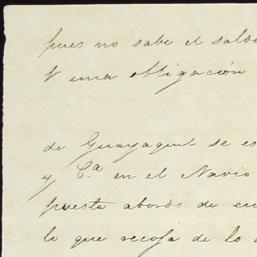 pues no sabe el saldo
N una obligación
de Guayaquil se es
y C.ª en el Navio
puesta abordo de cu
lo que recoja de lo